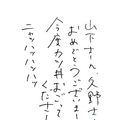 山下さん、久野さ
おめでとうございま
今度カツ丼おごって
くださ
ニャッハッハッハッ